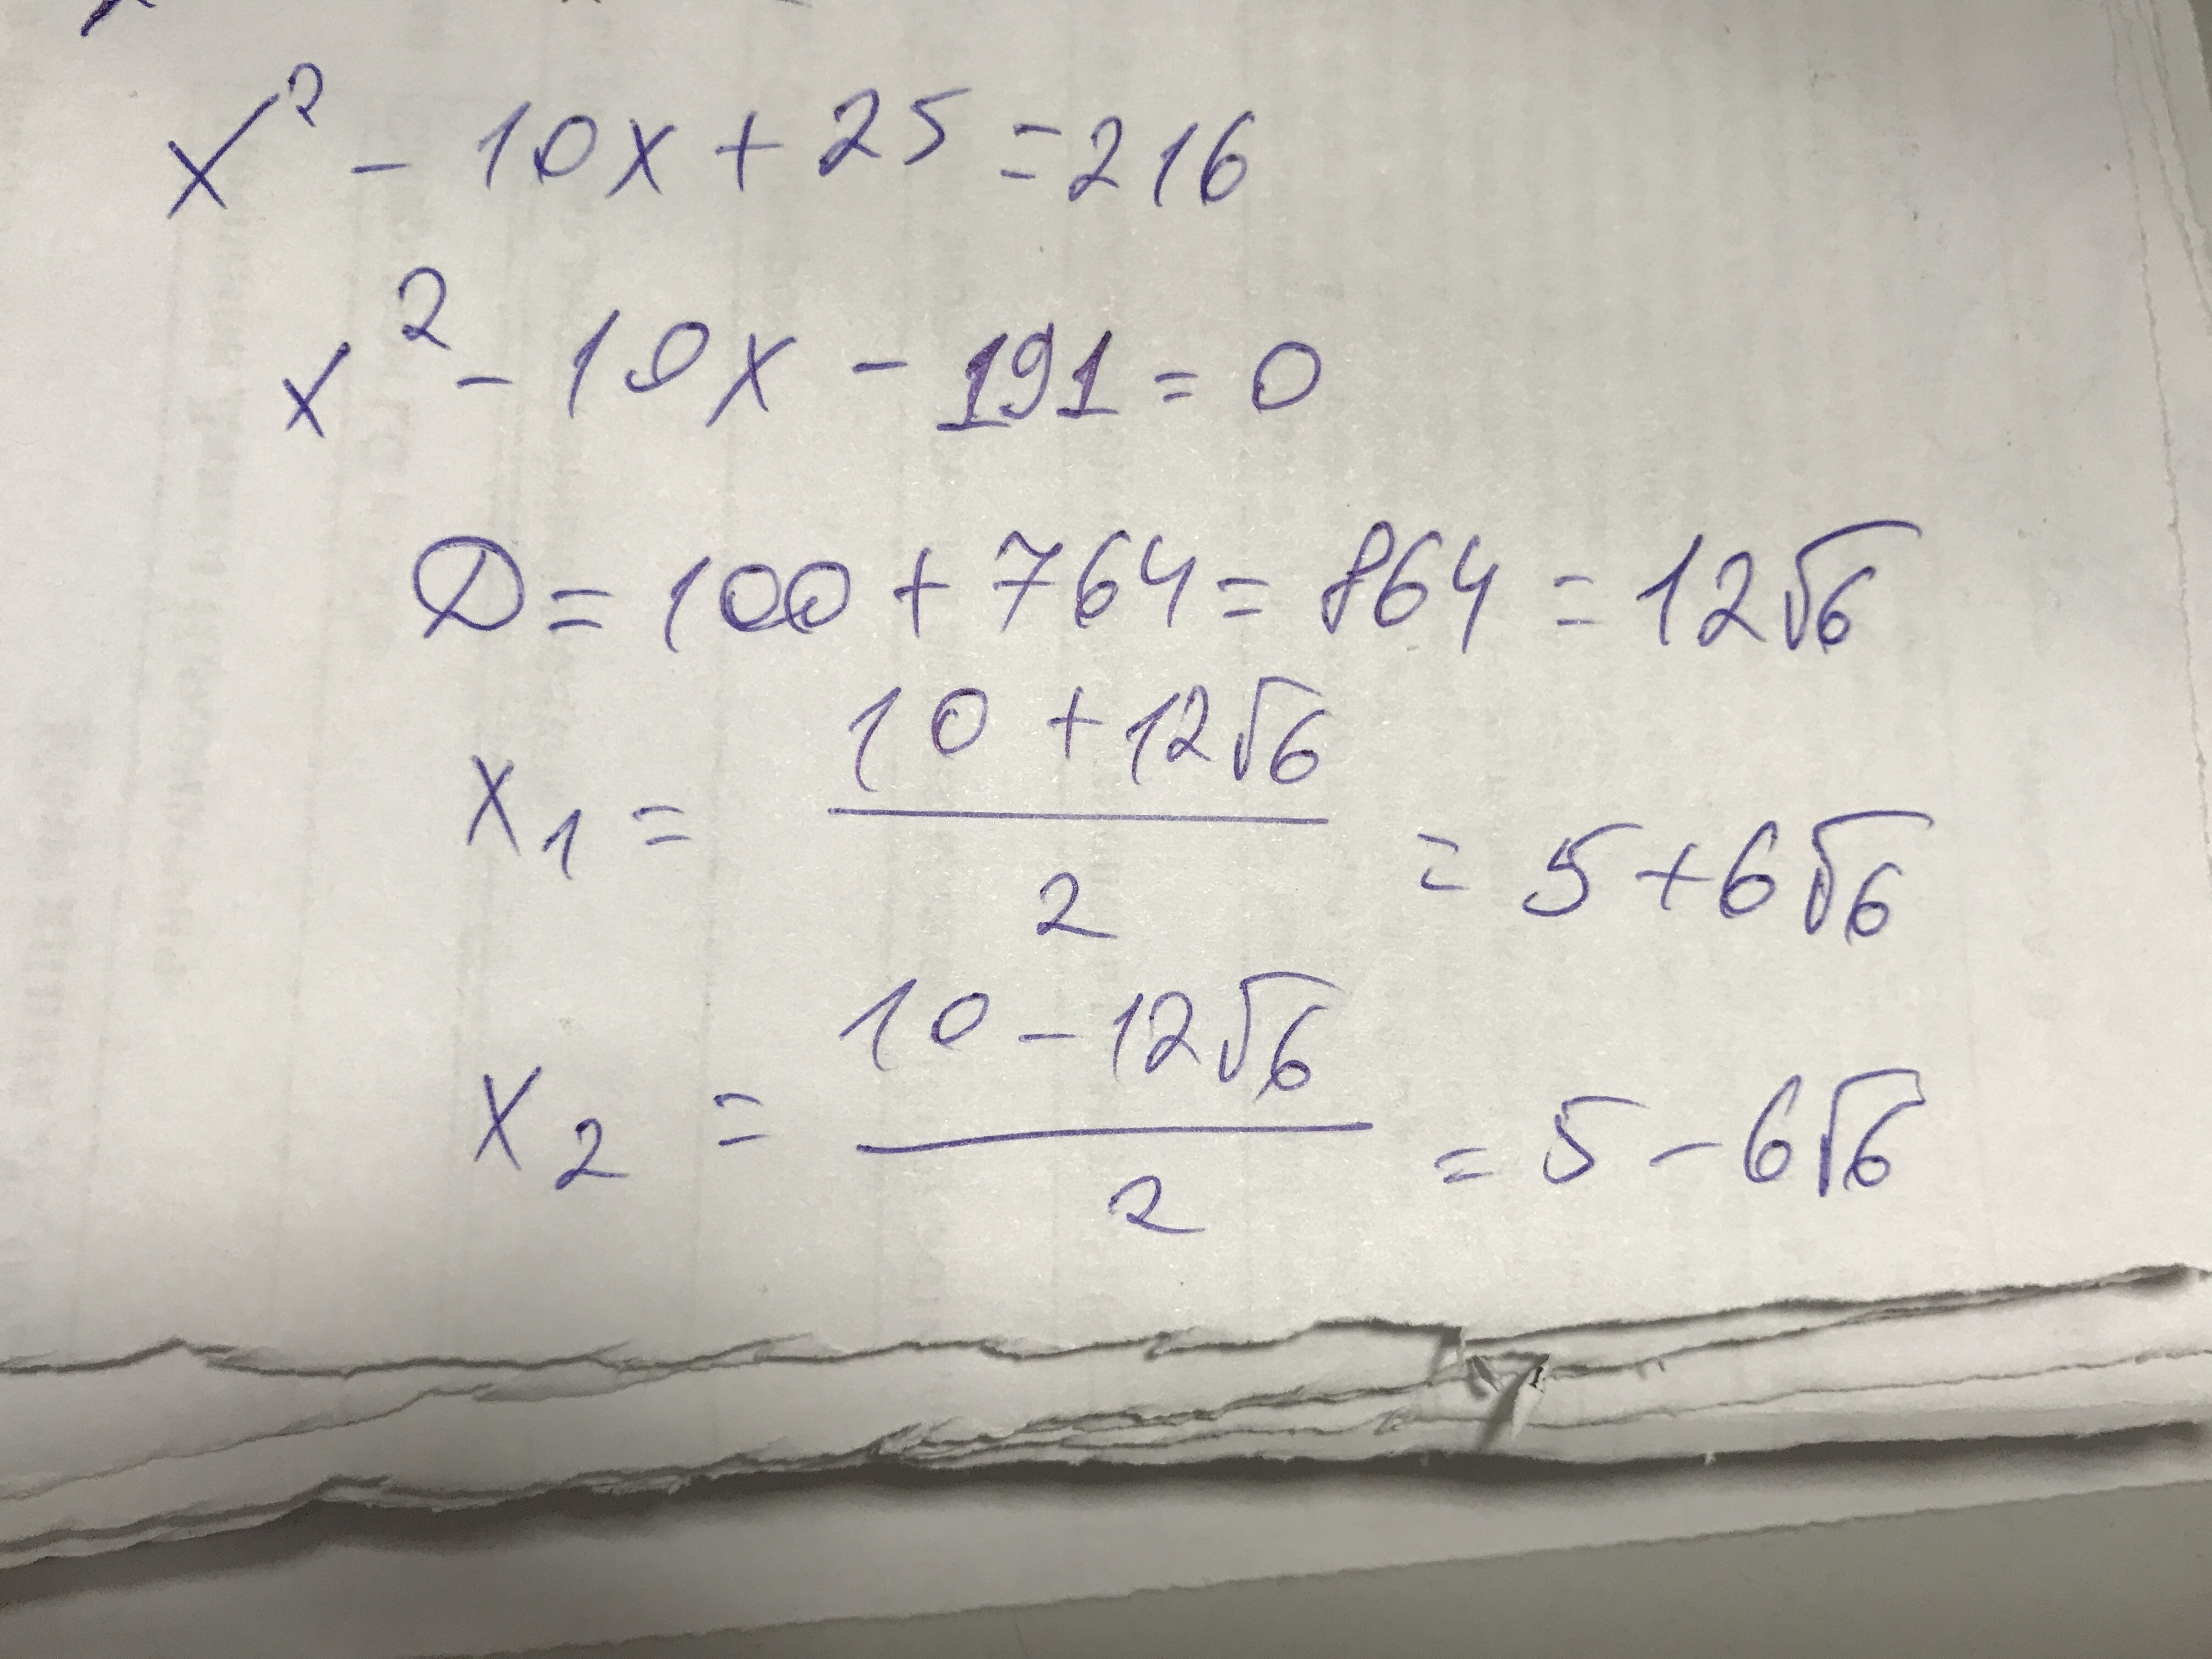 x² - 10x + 25 = 216
x² - 10x - 191 = 0
D = 100 + 764 = 864 = 12√6
x₁ = (10 + 12√6)/2 = 5 + 6√6
x₂ = (10 - 12√6)/2 = 5 - 6√6